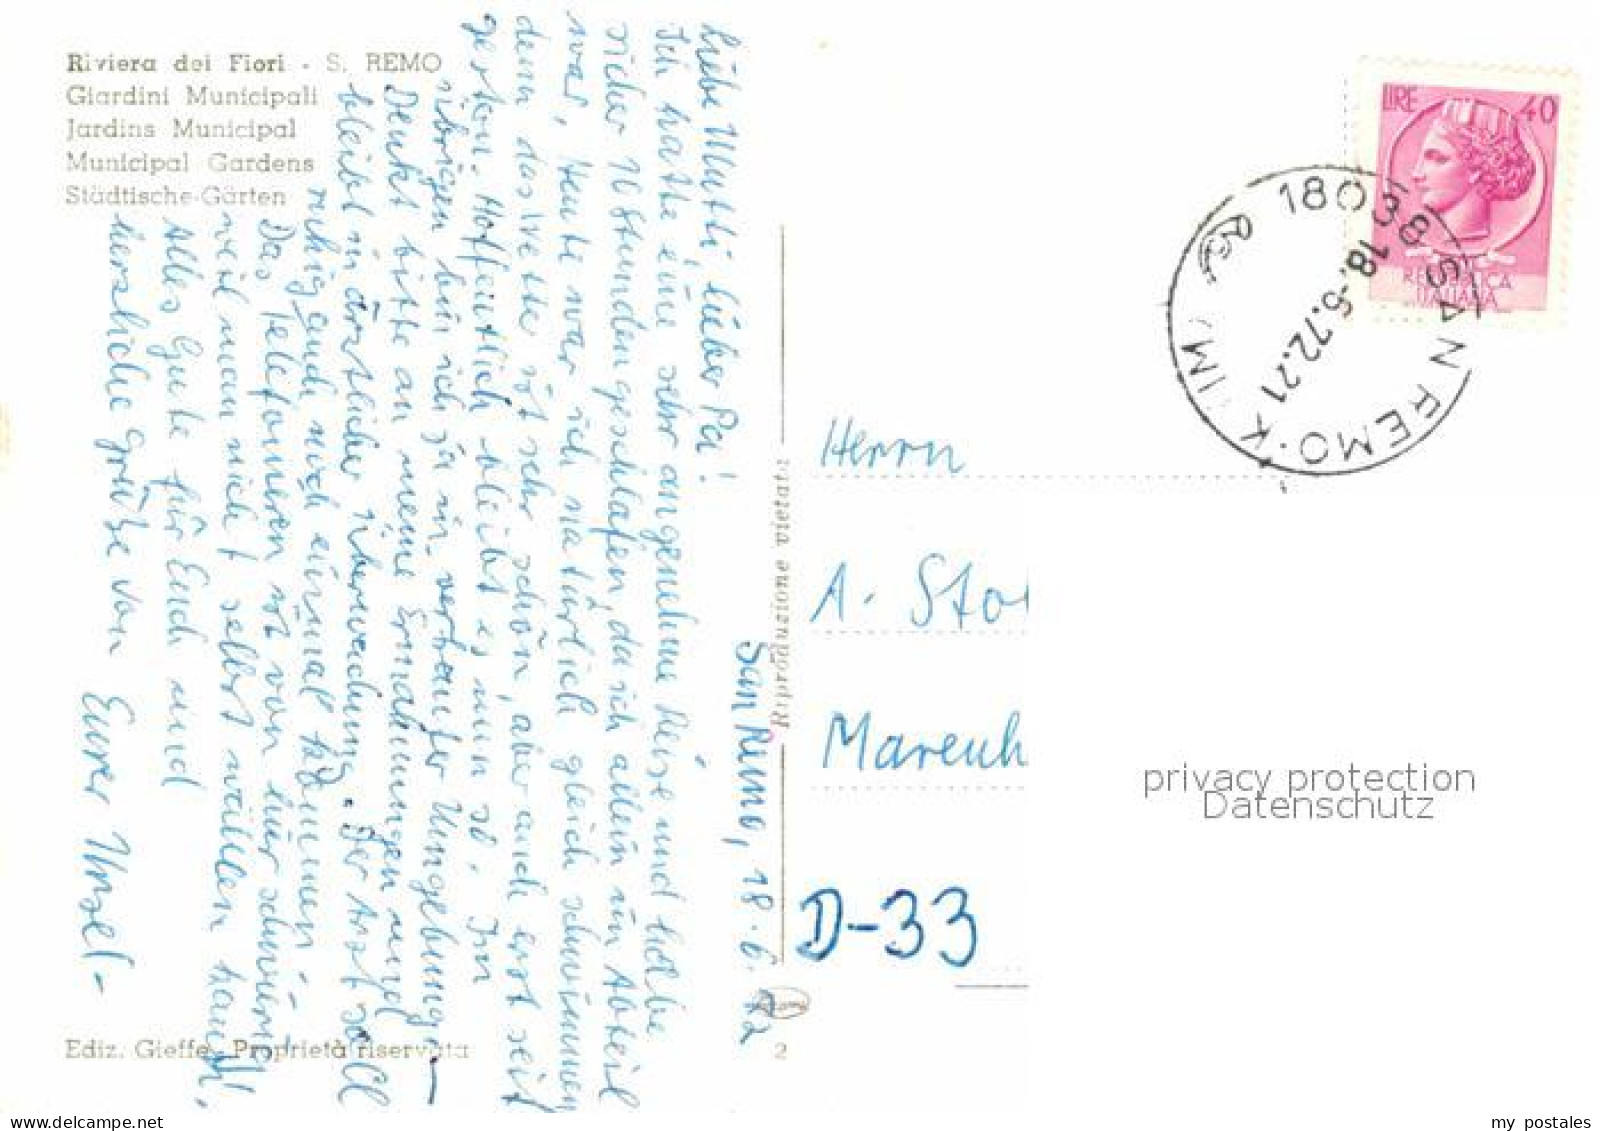 Riviera dei Fiori - S. REMO
Giardini Municipali
Jardins Municipal
Municipal Gardens
Städtische-Gärten
San Remo, 18.6.72
Liebe Mutti, lieber Pa!
Ich hatte eine sehr angenehme Reise und habe
sicher 16 Stunden geschlafen, da ich allein im Abteil
war, heute war ich natürlich gleich schwimmen
denn das Wetter ist sehr schön, aber auch erst seit
gestern. Hoffentlich bleibt es nun so. Im
übrigen bin ich ja in vertrauter Umgebung -
Denkt bitte an meine Ermahnungen und
bleibt in ärztlicher Überwachung. Der Arzt soll
ruhig auch noch einmal kommen -
Das Telefonieren ist von hier schwierig,
weil man nicht selbst wählen kann!
Alles Gute für Euch und
herzliche Grüße von Eurer Ursel -
Ediz. Gieffe. Proprietà riservata
2
Riproduzione vietata
LIRE 40
REPUBBLICA
ITALIANA
18038 SAN REMO. K (IM)
18.-6.72.21
Herrn
A. Sto
Mareuh
D-33
privacy protection
Datenschutz
my postales